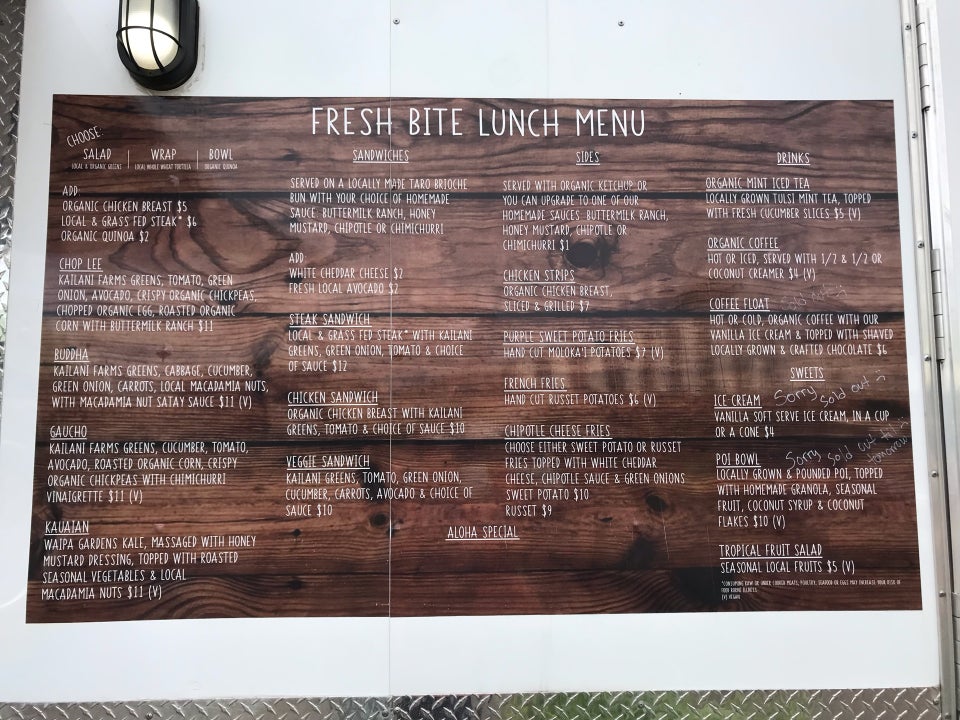 FRESH BITE LUNCH MENU
CHOOSE:
SALAD | WRAP | BOWL
LOCAL & ORGANIC GREENS | LOCAL WHOLE WHEAT TORTILLA | ORGANIC QUINOA
ADD
ORGANIC CHICKEN BREAST $5
LOCAL & GRASS FED STEAK* $6
ORGANIC QUINOA $2
CHOP LEE
KAILANI FARMS GREENS, TOMATO, GREEN
ONION, AVOCADO, CRISPY ORGANIC CHICKPEAS,
CHOPPED ORGANIC EGG, ROASTED ORGANIC
CORN WITH BUTTERMILK RANCH $11
BUDDHA
KAILANI FARMS GREENS, CABBAGE, CUCUMBER,
GREEN ONION, CARROTS, LOCAL MACADAMIA NUTS,
WITH MACADAMIA NUT SATAY SAUCE $11 (V)
GAUCHO
KAILANI FARMS GREENS, CUCUMBER, TOMATO,
AVOCADO, ROASTED ORGANIC CORN, CRISPY
ORGANIC CHICKPEAS WITH CHIMICHURRI
VINAIGRETTE $11 (V)
KAUAIAN
WAIPA GARDENS KALE, MASSAGED WITH HONEY
MUSTARD DRESSING, TOPPED WITH ROASTED
SEASONAL VEGETABLES & LOCAL
MACADAMIA NUTS $11 (V)
SANDWICHES
SERVED ON A LOCALLY MADE TARO BRIOCHE
BUN WITH YOUR CHOICE OF HOMEMADE
SAUCE: BUTTERMILK RANCH, HONEY
MUSTARD, CHIPOTLE OR CHIMICHURRI
ADD
WHITE CHEDDAR CHEESE $2
FRESH LOCAL AVOCADO $2
STEAK SANDWICH
LOCAL & GRASS FED STEAK* WITH KAILANI
GREENS, GREEN ONION, TOMATO & CHOICE
OF SAUCE $12
CHICKEN SANDWICH
ORGANIC CHICKEN BREAST WITH KAILANI
GREENS, TOMATO & CHOICE OF SAUCE $10
VEGGIE SANDWICH
KAILANI GREENS, TOMATO, GREEN ONION,
CUCUMBER, CARROTS, AVOCADO & CHOICE OF
SAUCE $10
ALOHA SPECIAL
SIDES
SERVED WITH ORGANIC KETCHUP OR
YOU CAN UPGRADE TO ONE OF OUR
HOMEMADE SAUCES: BUTTERMILK RANCH,
HONEY MUSTARD, CHIPOTLE OR
CHIMICHURRI $1
CHICKEN STRIPS
ORGANIC CHICKEN BREAST,
SLICED & GRILLED $7
PURPLE SWEET POTATO FRIES
HAND CUT MOLOKA'I POTATOES $7 (V)
FRENCH FRIES
HAND CUT RUSSET POTATOES $6 (V)
CHIPOTLE CHEESE FRIES
CHOOSE EITHER SWEET POTATO OR RUSSET
FRIES TOPPED WITH WHITE CHEDDAR
CHEESE, CHIPOTLE SAUCE & GREEN ONIONS
SWEET POTATO $10
RUSSET $9
DRINKS
ORGANIC MINT ICED TEA
LOCALLY GROWN TULSI MINT TEA, TOPPED
WITH FRESH CUCUMBER SLICES $5 (V)
ORGANIC COFFEE
HOT OR ICED, SERVED WITH 1/2 & 1/2 OR
COCONUT CREAMER $4 (V)
COFFEE FLOAT Sold out :(
HOT OR COLD, ORGANIC COFFEE WITH OUR
VANILLA ICE CREAM & TOPPED WITH SHAVED
LOCALLY GROWN & CRAFTED CHOCOLATE $6
SWEETS
ICE CREAM Sorry sold out :(
VANILLA SOFT SERVE ICE CREAM, IN A CUP
OR A CONE $4
POI BOWL Sorry sold out till tomorrow
LOCALLY GROWN & POUNDED POI, TOPPED
WITH HOMEMADE GRANOLA, SEASONAL
FRUIT, COCONUT SYRUP & COCONUT
FLAKES $10 (V)
TROPICAL FRUIT SALAD
SEASONAL LOCAL FRUITS $5 (V)
*CONSUMING RAW OR UNDER COOKED MEATS, POULTRY, SEAFOOD OR EGGS MAY INCREASE YOUR RISK OF
FOOD BORNE ILLNESS.
(V) VEGAN